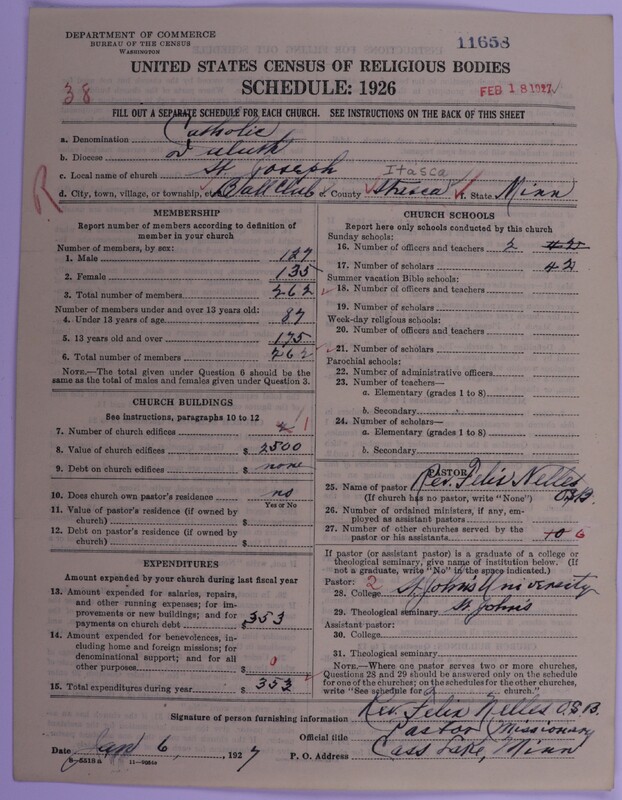 DEPARTMENT OF COMMERCE
BUREAU OF THE CENSUS
WASHINGTON
11658
UNITED STATES CENSUS OF RELIGIOUS BODIES
SCHEDULE: 1926
FEB 18 1927
38
FILL OUT A SEPARATE SCHEDULE FOR EACH CHURCH. SEE INSTRUCTIONS ON THE BACK OF THIS SHEET
a. Denomination Catholic
b. Diocese Duluth
c. Local name of church St Joseph
Itasca
d. City, town, village, or township, etc. Ball Club e. County Itasca f. State Minn
R
MEMBERSHIP
Report number of members according to definition of
member in your church
Number of members, by sex:
1. Male 127
2. Female 135
3. Total number of members 262
Number of members under and over 13 years old:
4. Under 13 years of age 87
5. 13 years old and over 175
6. Total number of members 262
NOTE.—The total given under Question 6 should be
the same as the total of males and females given under Question 3.
CHURCH BUILDINGS
See instructions, paragraphs 10 to 12
7. Number of church edifices 1
8. Value of church edifices $ 2500
9. Debt on church edifices $ none
10. Does church own pastor's residence no
Yes or No
11. Value of pastor's residence (if owned by
church) $
12. Debt on pastor's residence (if owned by
church) $
EXPENDITURES
Amount expended by your church during last fiscal year
13. Amount expended for salaries, repairs,
and other running expenses; for im-
provements or new buildings; and for
payments on church debt $ 353
14. Amount expended for benevolences, in-
cluding home and foreign missions; for
denominational support; and for all
other purposes $ 0
15. Total expenditures during year $ 353
CHURCH SCHOOLS
Report here only schools conducted by this church
Sunday schools:
16. Number of officers and teachers 2 42
17. Number of scholars 42
Summer vacation Bible schools:
18. Number of officers and teachers
19. Number of scholars
Week-day religious schools:
20. Number of officers and teachers
21. Number of scholars
Parochial schools:
22. Number of administrative officers
23. Number of teachers—
a. Elementary (grades 1 to 8)
b. Secondary
24. Number of scholars—
a. Elementary (grades 1 to 8)
b. Secondary
PASTOR
25. Name of pastor Rev. Felix Nelles
(If church has no pastor, write "None") O.S.B.
26. Number of ordained ministers, if any, em-
ployed as assistant pastors
27. Number of other churches served by the
pastor or his assistants 10 6
If pastor (or assistant pastor) is a graduate of a college or
theological seminary, give name of institution below. (If
not a graduate, write "No" in the space indicated.)
Pastor: 2
28. College St. John's University
29. Theological seminary St. John's
Assistant pastor:
30. College
31. Theological seminary
NOTE.—Where one pastor serves two or more churches,
Questions 28 and 29 should be answered only on the schedule
for one of the churches; on the schedules for the other churches,
write "See schedule for church."
Signature of person furnishing information Rev. Felix Nelles O.S.B.
Official title Pastor (Missionary
Date Jan 6, 1927 P. O. Address Cass Lake, Minn